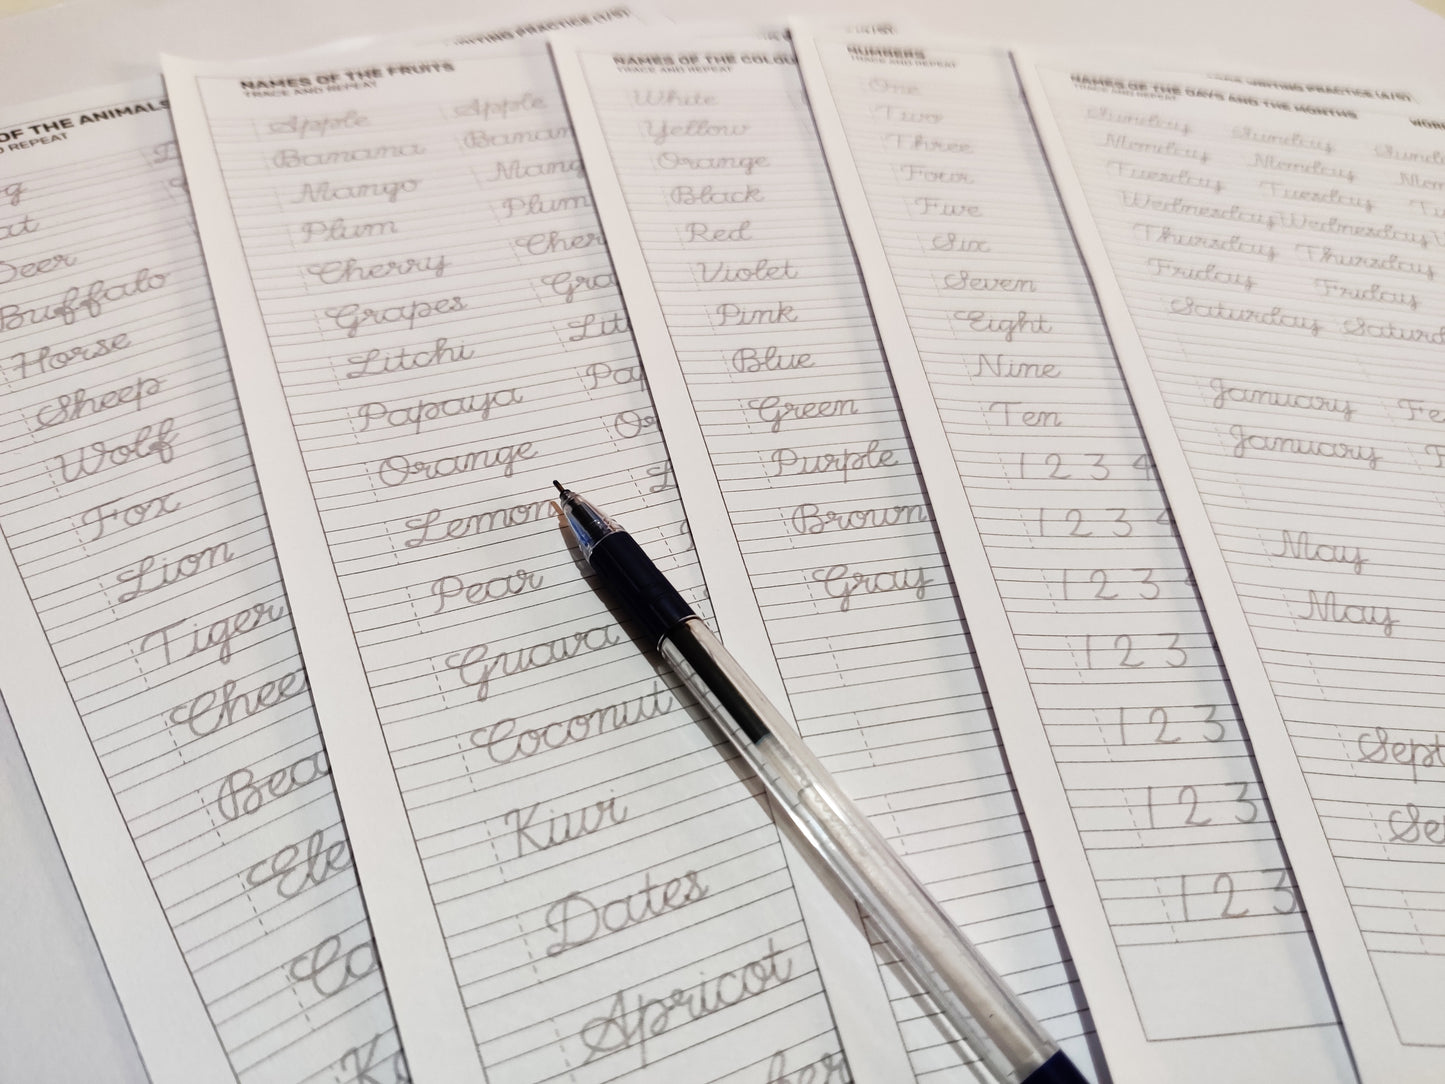 OF THE ANIMALS
REPEAT
Buffalo
Horse
Sheep
Wolf
Fox
Lion
Tiger
NAMES OF THE FRUITS
TRACE AND REPEAT
Apple Apple
Banana Banan
Mango Mang
Plum Plum
Cherry Cher
Grapes Gra
Litchi Lit
Papaya Pap
Orange Or
Lemon L
Pear
Guava
Coconut
Kiwi
Dates
Apricot
NAMES OF THE COLOU
TRACE AND REPEAT
White
Yellow
Orange
Black
Red
Violet
Pink
Blue
Green
Purple
Brown
Gray
NUMBERS
TRACE AND REPEAT
One
Two
Three
Four
Five
Six
Seven
Eight
Nine
Ten
1 2 3 4
1 2 3 4
1 2 3
1 2 3
1 2 3
1 2 3
1 2 3
NAMES OF THE DAYS AND THE MONTHS
TRACE AND REPEAT
Sunday Sunday Sund
Monday Monday Mon
Tuesday Tuesday Tu
Wednesday Wednesday W
Thursday Thursday
Friday Friday
Saturday Saturd
January Fe
January F
May
May
Sept
Se